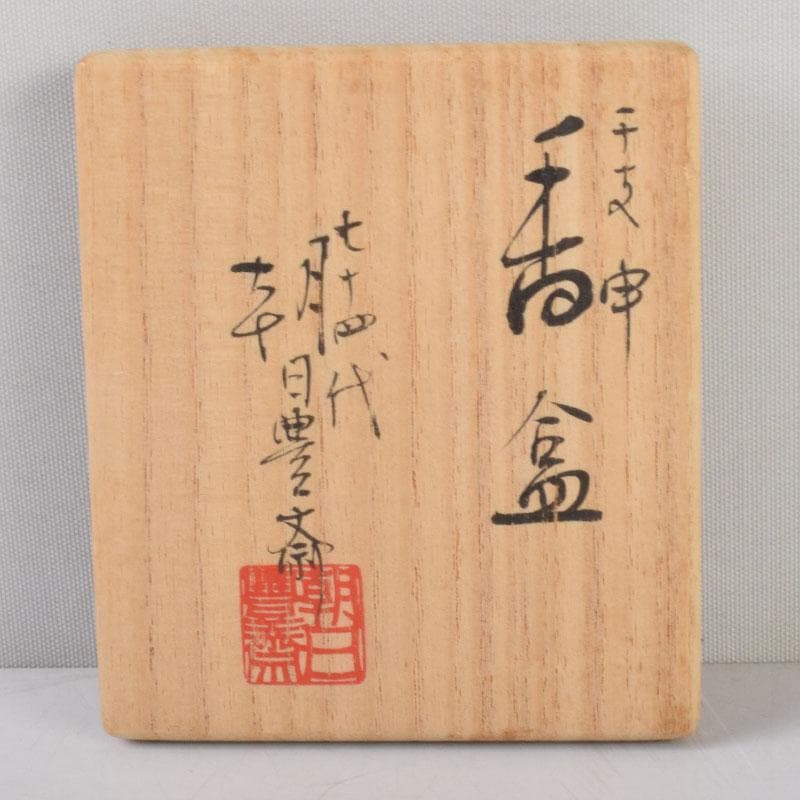 干支申
香盒
七十四代
朝日豊斎
朝日
豊斎